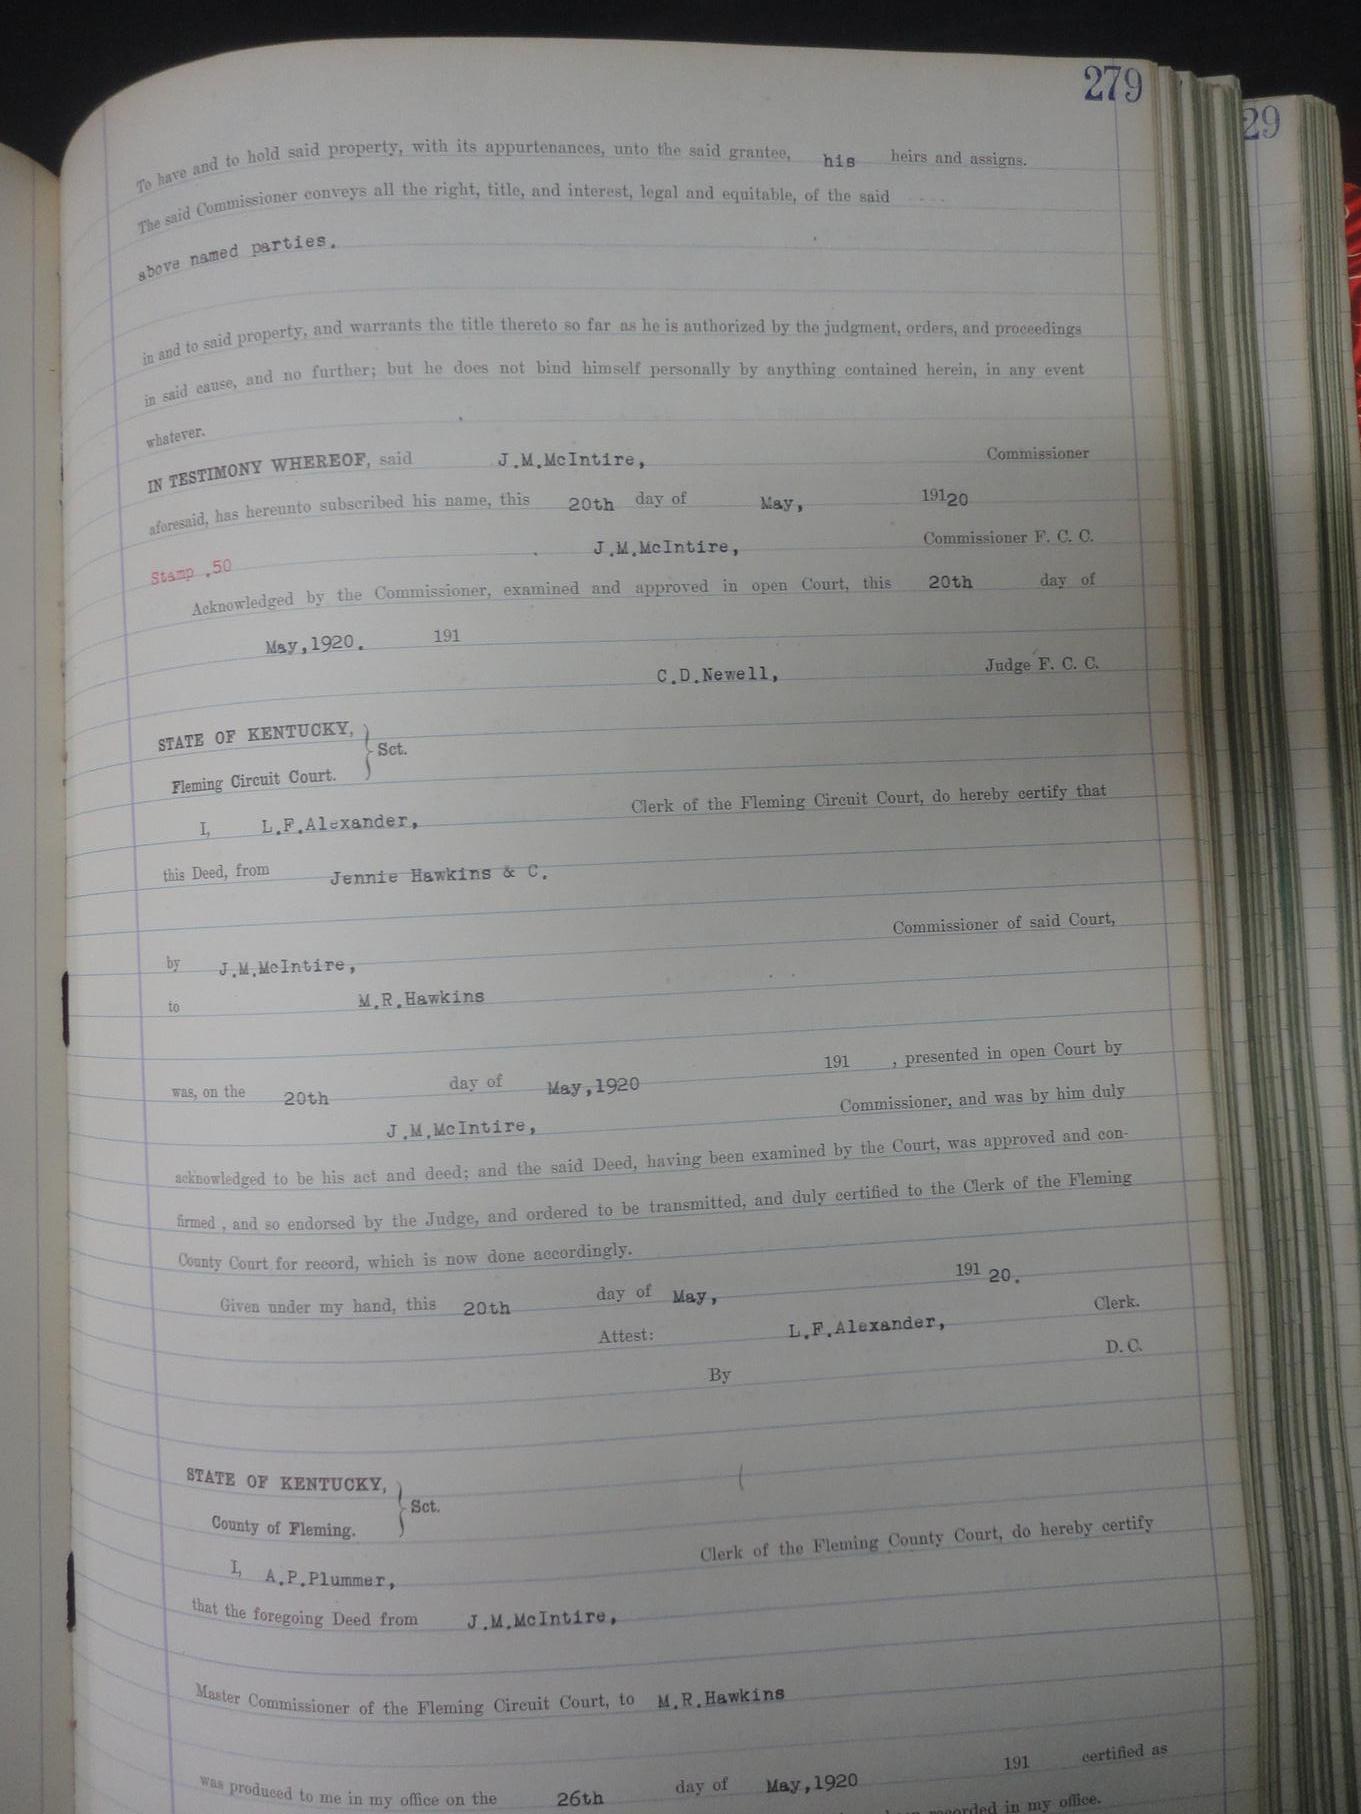 279
29
To have and to hold said property, with its appurtenances, unto the said grantee, his heirs and assigns.
The said Commissioner conveys all the right, title, and interest, legal and equitable, of the said
above named parties.
in and to said property, and warrants the title thereto so far as he is authorized by the judgment, orders, and proceedings
in said cause, and no further; but he does not bind himself personally by anything contained herein, in any event
whatever.
IN TESTIMONY WHEREOF, said J.M.McIntire, Commissioner
aforesaid, has hereunto subscribed his name, this 20th day of May, 19120
J.M.McIntire, Commissioner F. C. C.
Stamp .50
Acknowledged by the Commissioner, examined and approved in open Court, this 20th day of
May,1920. 191
C.D.Newell, Judge F. C. C.
STATE OF KENTUCKY,
Sct.
Fleming Circuit Court.
I, L.F.Alexander, Clerk of the Fleming Circuit Court, do hereby certify that
this Deed, from Jennie Hawkins & C.
Commissioner of said Court,
by J.M.McIntire,
to M.R.Hawkins
was, on the 20th day of May,1920 191 , presented in open Court by
J.M.McIntire, Commissioner, and was by him duly
acknowledged to be his act and deed; and the said Deed, having been examined by the Court, was approved and con-
firmed , and so endorsed by the Judge, and ordered to be transmitted, and duly certified to the Clerk of the Fleming
County Court for record, which is now done accordingly.
Given under my hand, this 20th day of May, 191 20.
Attest: L.F.Alexander, Clerk.
By D. C.
STATE OF KENTUCKY,
Sct.
County of Fleming.
I, A.P.Plummer, Clerk of the Fleming County Court, do hereby certify
that the foregoing Deed from J.M.McIntire,
Master Commissioner of the Fleming Circuit Court, to M.R.Hawkins
was produced to me in my office on the 26th day of May,1920 191 certified as
recorded in my office.